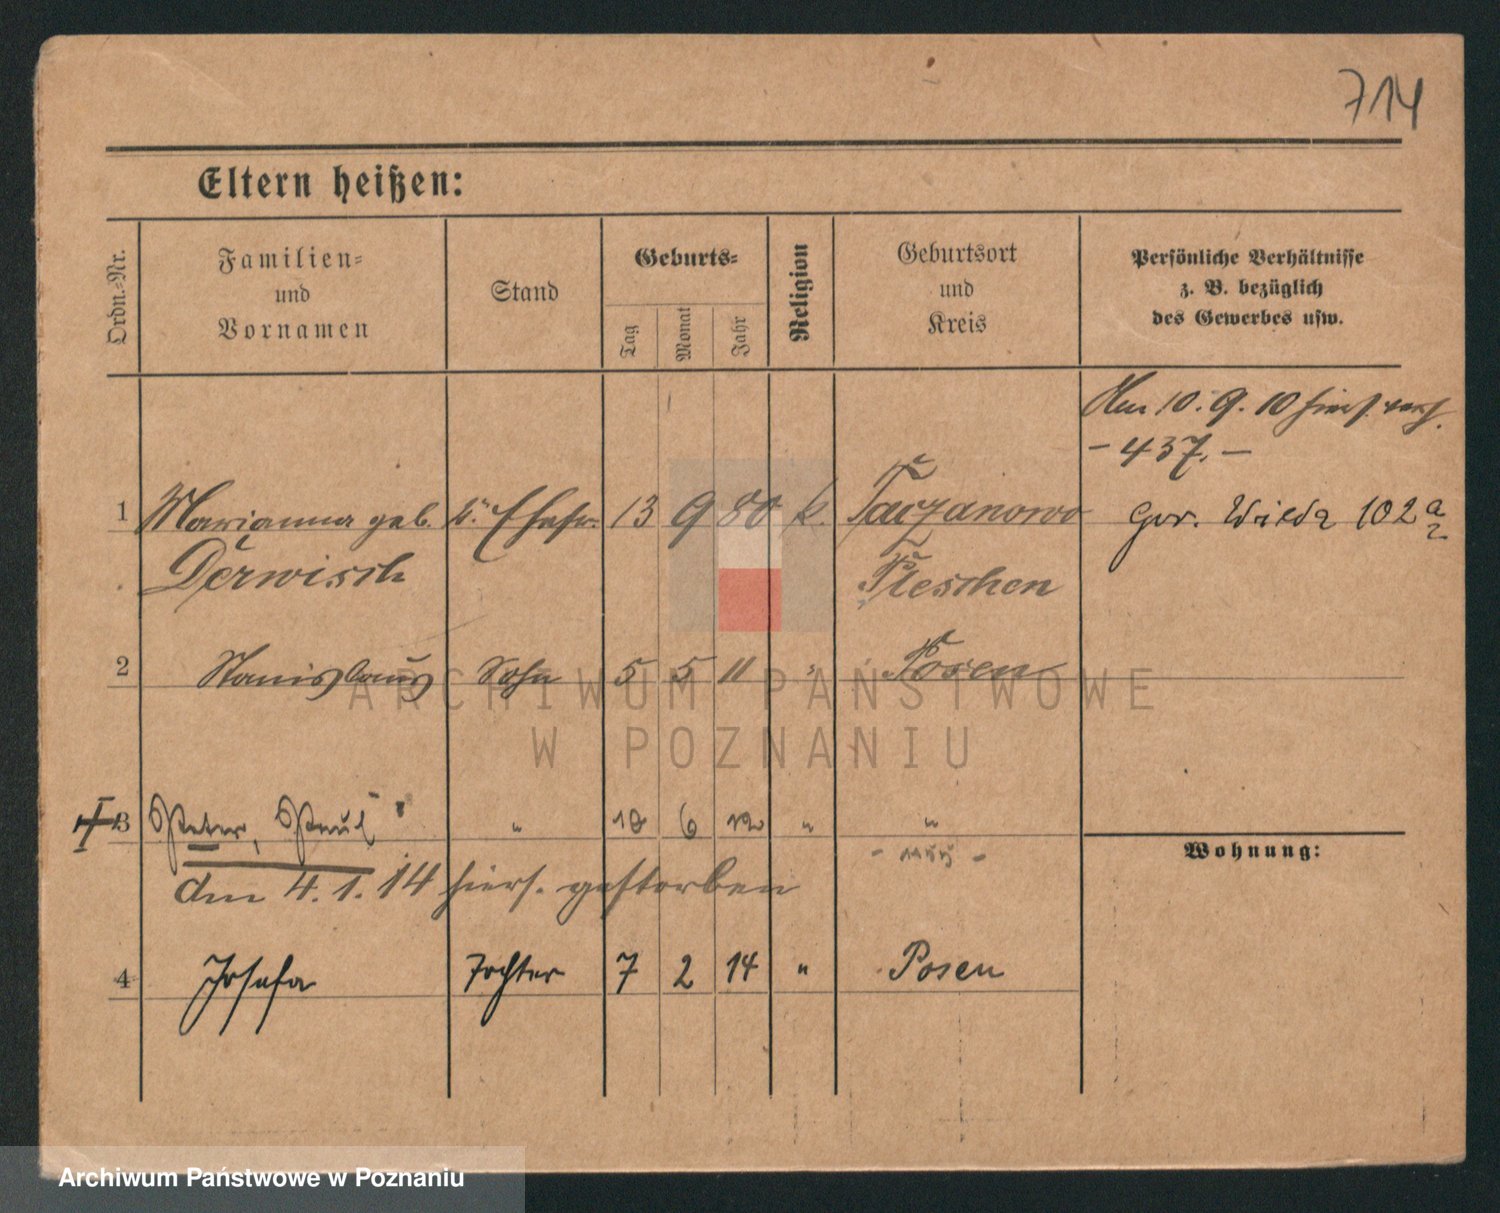 714
Eltern heißen:
Ordn.-Nr.
Familien-
und
Vornamen
Stand
Geburts-
Tag
Monat
Jahr
Religion
Geburtsort
und
Kreis
Persönliche Verhältnisse
z. B. bezüglich
des Gewerbes usw.
Am 10. 9. 10 hies.
- 437. -
1 Marianna geb. Ehefr. 13 9 80 k. Taczanowo Ger. Wilda 102a
Derwisch Pleschen
2 Stanislaus Sohn 5 5 11 " Posen
3 Peter, Paul " 6 12 " "
- 1155 -
Wohnung:
am 4. 1. 14 hiers. gestorben
4 Josefa Tochter 7 2 14 " Posen
ARCHIWUM PAŃSTWOWE
W POZNANIU
Archiwum Państwowe w Poznaniu